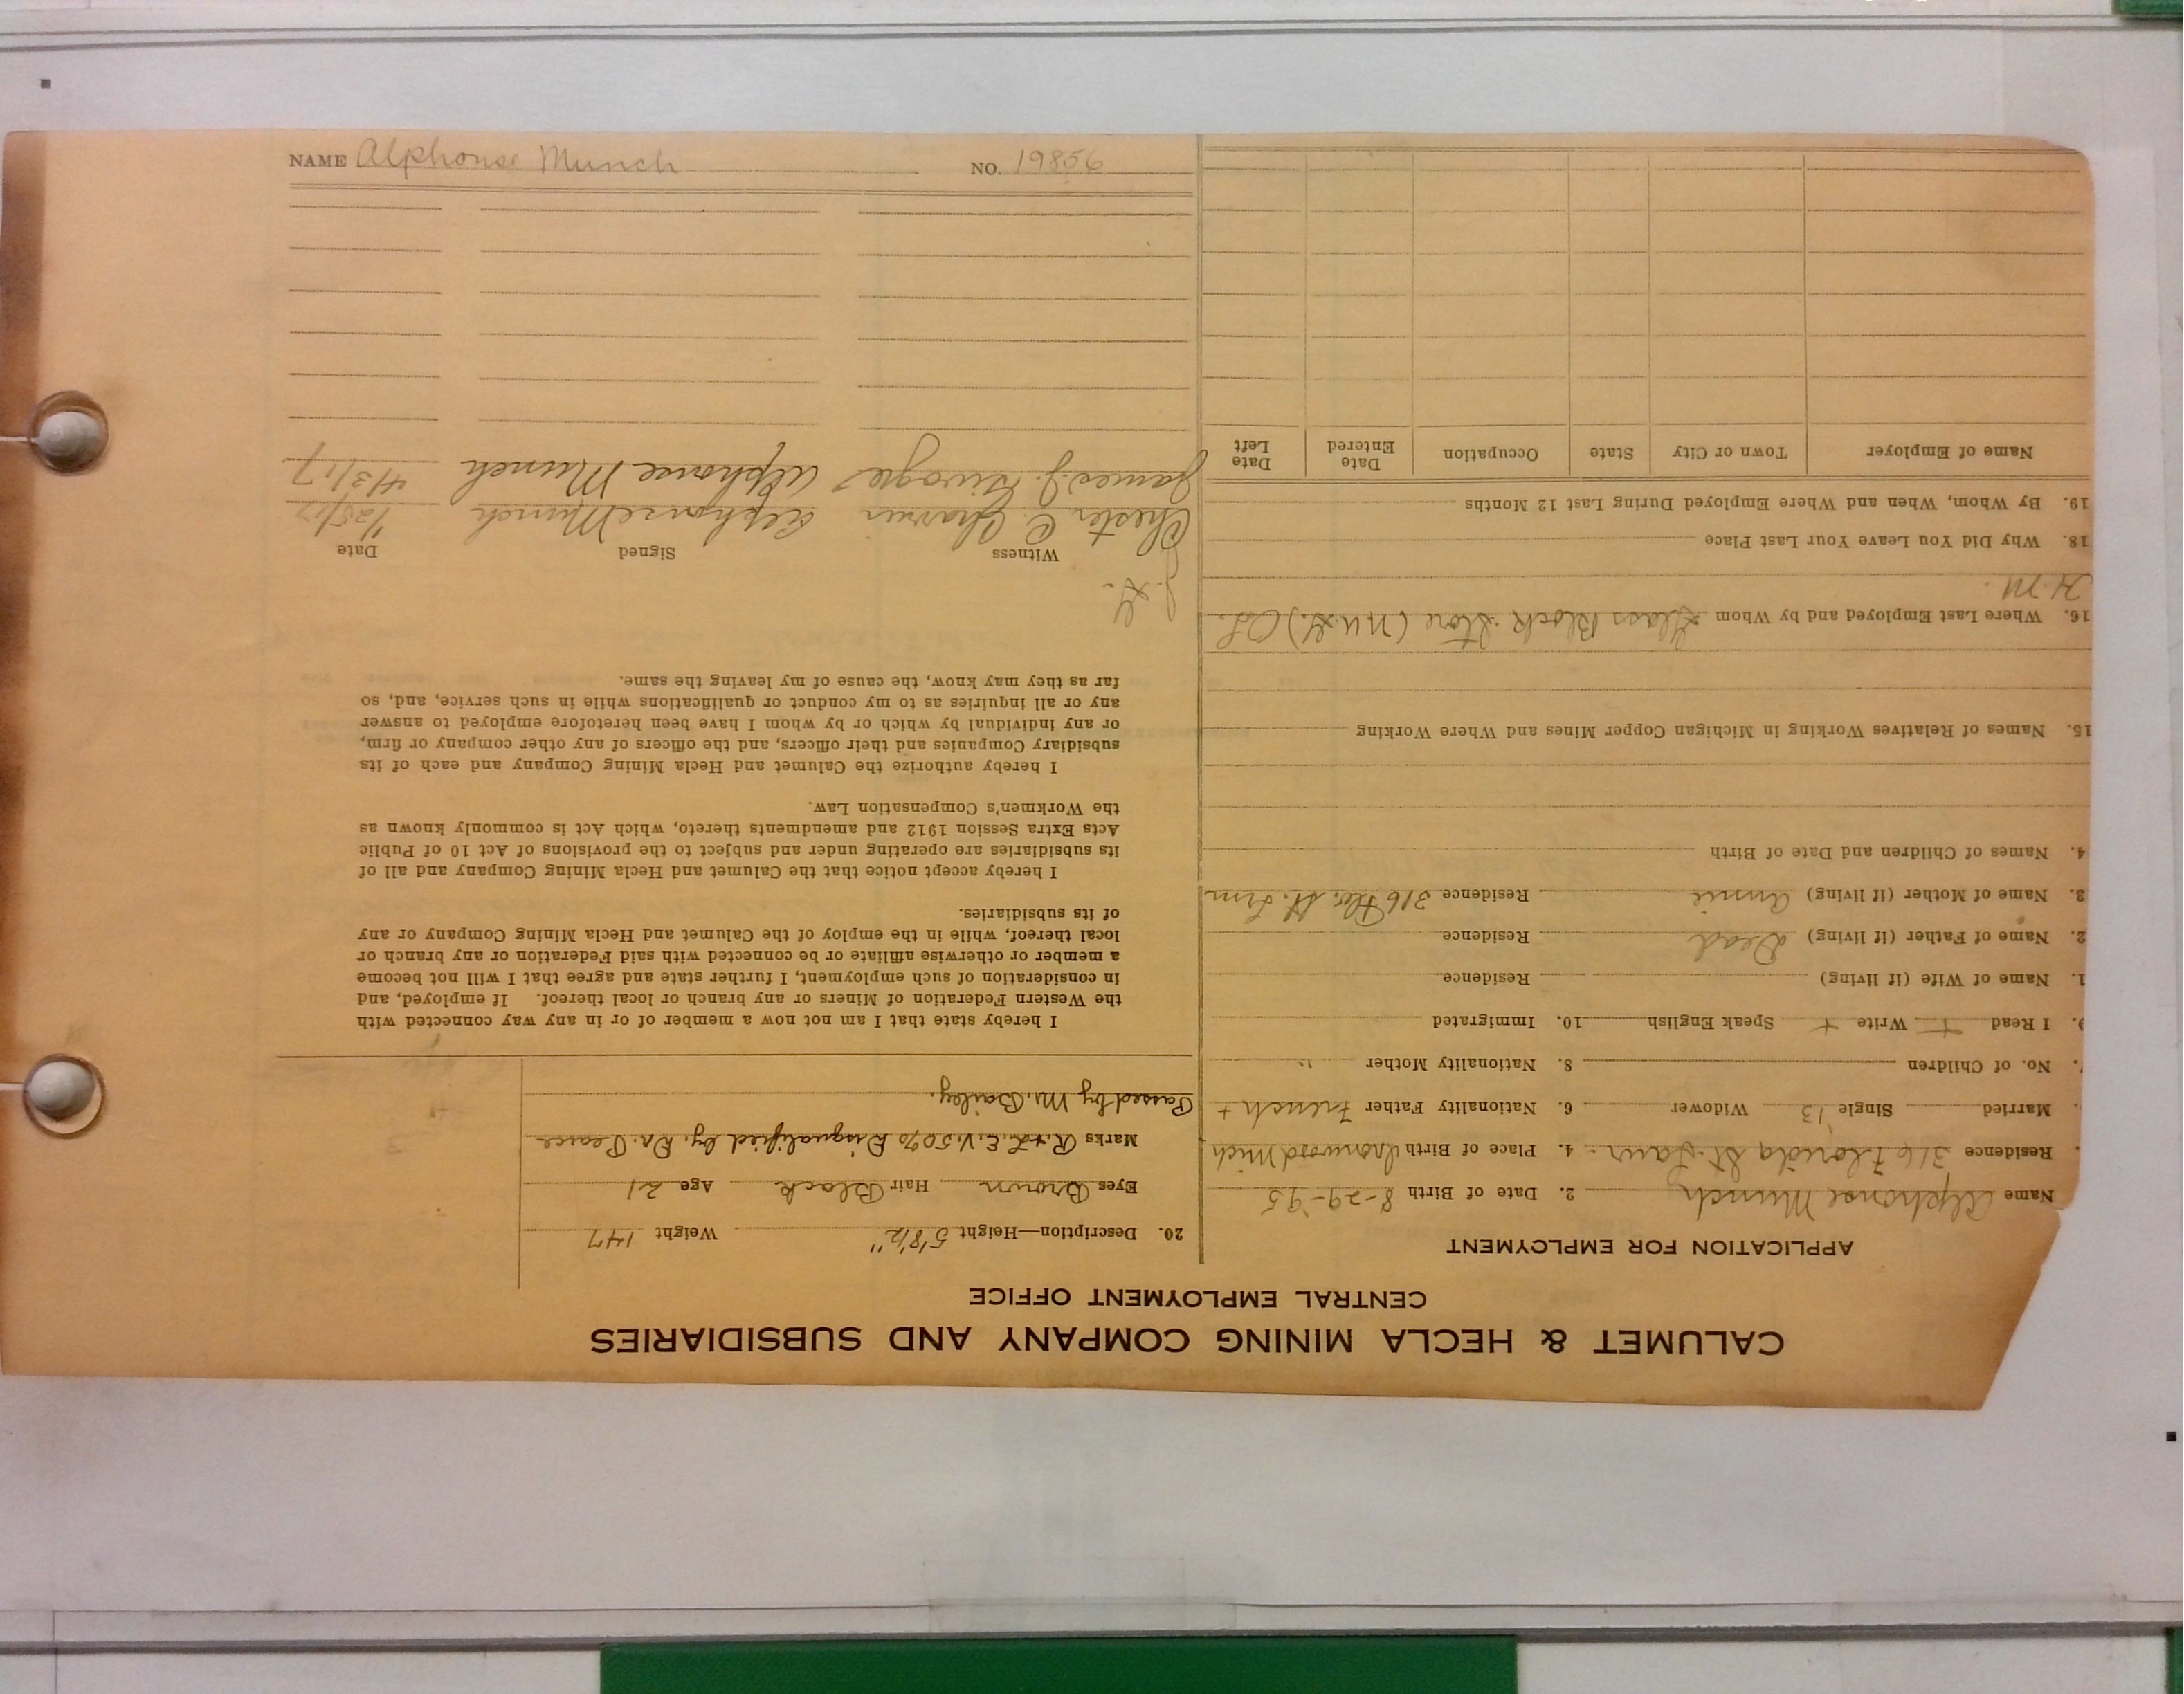 CALUMET & HECLA MINING COMPANY AND SUBSIDIARIES
CENTRAL EMPLOYMENT OFFICE
APPLICATION FOR EMPLOYMENT
Name Alphonse Munch 2. Date of Birth 8-29-95
Residence 316 Florida St. Laur 4. Place of Birth Ironwood Mich
Married Single 13 Widower 6. Nationality Father French +
No. of Children 8. Nationality Mother "
I Read + Write + Speak English 10. Immigrated
1. Name of Wife (if living) Residence
2. Name of Father (if living) Dead Residence
3. Name of Mother (if living) Annie Residence 316 Flo. St. Lrm
4. Names of Children and Date of Birth
15. Names of Relatives Working in Michigan Copper Mines and Where Working
16. Where Last Employed and by Whom Glass Block Store
H.M.
18. Why Did You Leave Your Last Place
19. By Whom, When and Where Employed During Last 12 Months
Name of Employer Town or City State Occupation Date Entered Date Left
20. Description—Height 5'8½" Weight 147
Eyes Brown Hair Black Age 21
Marks R.+L.E.V. 50% Disqualified by Dr. Pearce
Passed by Mr. Bailey.
I hereby state that I am not now a member of or in any way connected with
the Western Federation of Miners or any branch or local thereof. If employed, and
in consideration of such employment, I further state and agree that I will not become
a member or otherwise affiliate or be connected with said Federation or any branch or
local thereof, while in the employ of the Calumet and Hecla Mining Company or any
of its subsidiaries.
I hereby accept notice that the Calumet and Hecla Mining Company and all of
its subsidiaries are operating under and subject to the provisions of Act 10 of Public
Acts Extra Session 1912 and amendments thereto, which Act is commonly known as
the Workmen's Compensation Law.
I hereby authorize the Calumet and Hecla Mining Company and each of its
subsidiary Companies and their officers, and the officers of any other company or firm,
or any individual by which or by whom I have been heretofore employed to answer
any or all inquiries as to my conduct or qualifications while in such service, and, so
far as they may know, the cause of my leaving the same.
Witness Signed Date
Chester C. Alphonse Munch 1/25/17
James J. Alphonse Munch 4/3/17
NAME Alphonse Munch NO. 19856